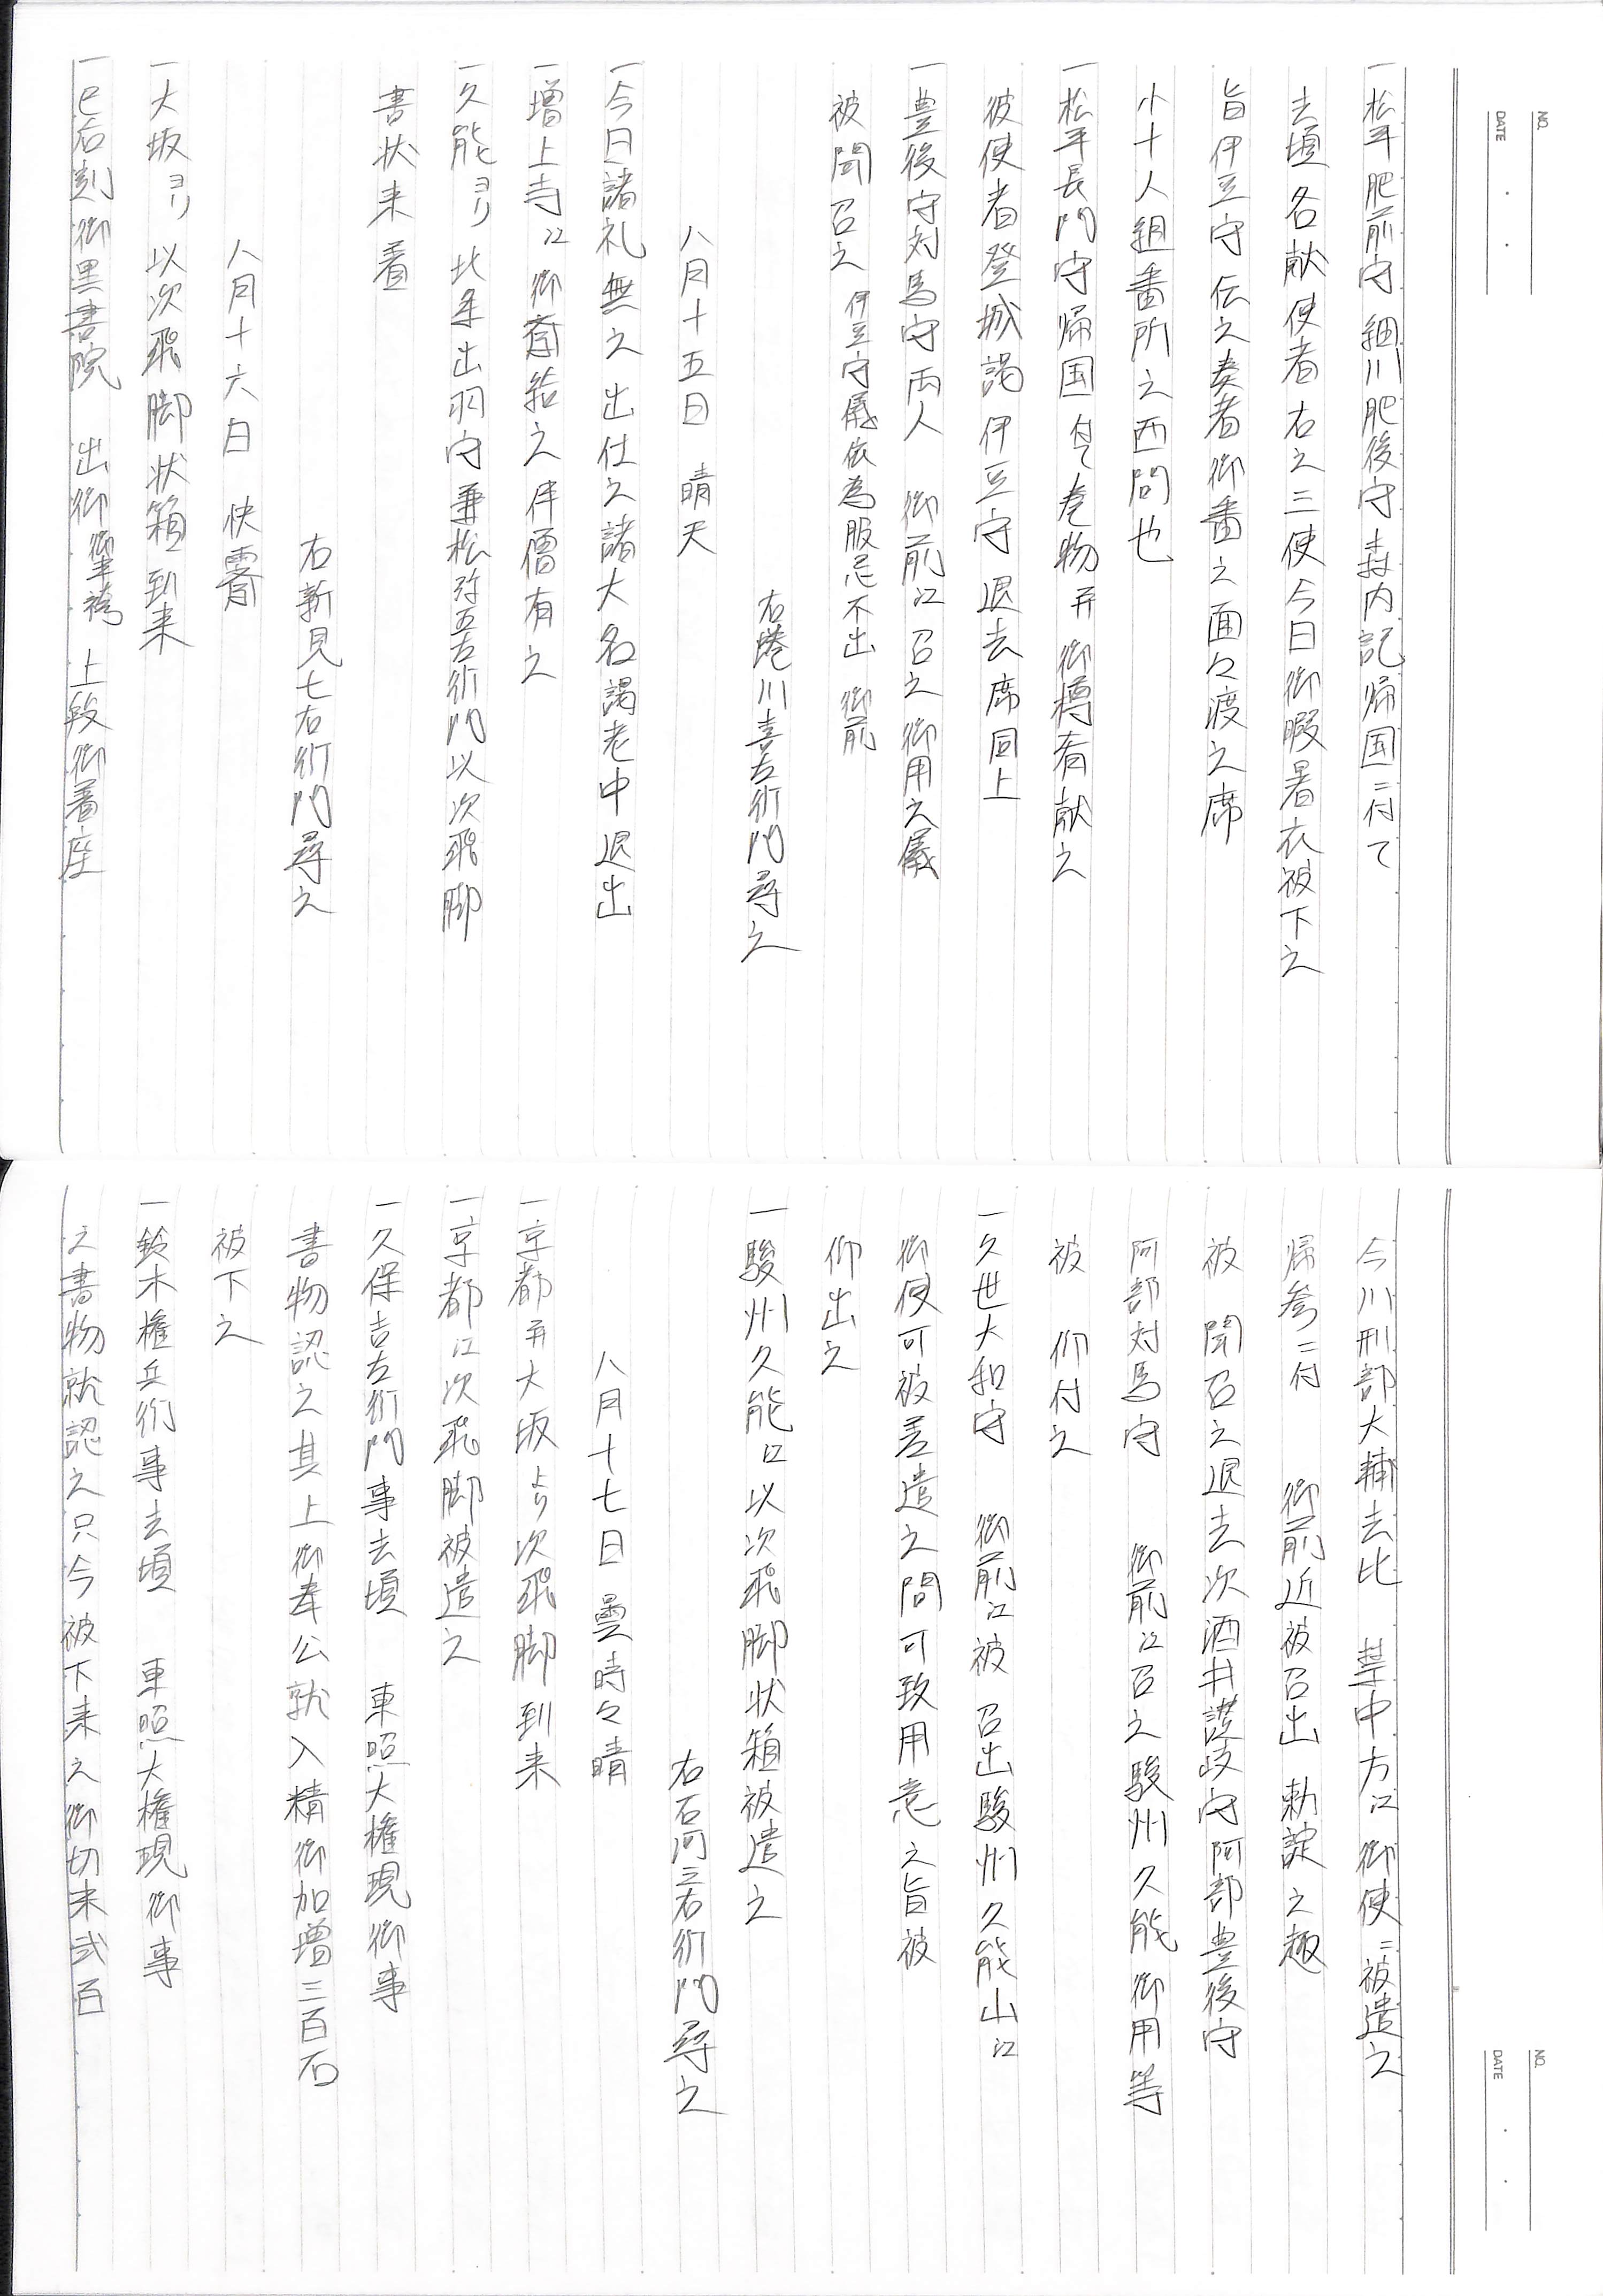 NO.
DATE
一松平肥前守細川肥後守森内記帰国ニ付て
去頃各献使者右之三使今日御暇暑衣被下之
旨伊豆守伝之奏者御番之面々渡之席
小十人組番所之西間也
一松平長門守帰国付て巻物并御樽肴献之
彼使者登城謁伊豆守退去席同上
一豊後守対馬守両人 御前江召之御用之儀
被聞召之 伊豆守儀依為服忌不出 御前
右蜷川喜左衛門尋之
八月十五日 晴天
一今日諸礼無之出仕之諸大名謁老中退出
一増上寺江御斎給之伴僧有之
一久能ヨリ北条出羽守兼松弥五左衛門以次飛脚
書状来着
右新見七右衛門尋之
八月十六日 快霽
一大坂ヨリ以次飛脚状箱到来
一巳后刻御黒書院 出御 御肩衣袴 上段御着座
今川刑部大輔去比 禁中方江御使ニ被遣之
帰参ニ付 御前近被召出 勅諚之趣
被 聞召之退去次酒井讃岐守阿部豊後守
阿部対馬守 御前江召之駿州久能御用等
被 仰付之
一久世大和守 御前江被 召出駿州久能山江
御使可被差遣之間可致用意之旨被
仰出之
一駿州久能江以次飛脚状箱被遣之
右石河三右衛門尋之
八月十七日 曇時々晴
一京都并大坂より次飛脚到来
一京都江次飛脚被遣之
一久保吉左衛門事去頃 東照大権現御事
書物認之其上御奉公就入精御加増三百石
被下之
一鈴木権兵衛事去頃 東照大権現御事
之書物就認之只今被下来之御切米弐百
NO.
DATE